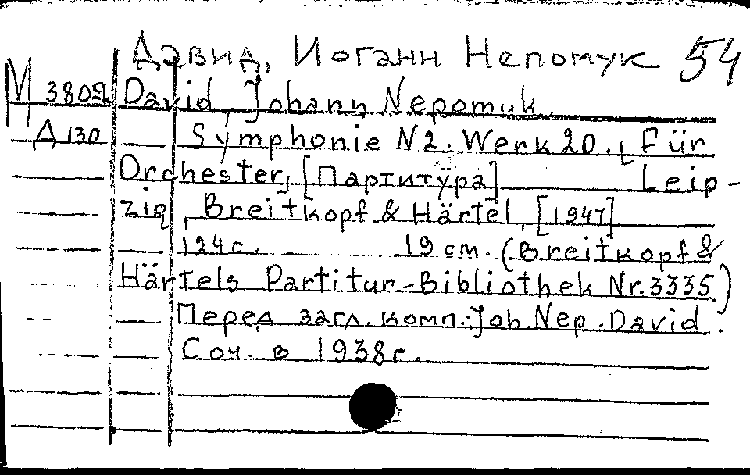 Дэвид, Иоганн Непомук 54
М 3802 David Johann Nepomuk
Д 130 Symphonie N2. Werk 20. [Für
Orchester, [Партитура] Leip-
zig, Breitkopf & Härtel, [1947]
124 с. 19 см. (Breitkopf &
Härtels Partitur-Bibliothek Nr. 3335)
Перед загл. комп.: Joh. Nep. David.
Соч. в 1938 г.